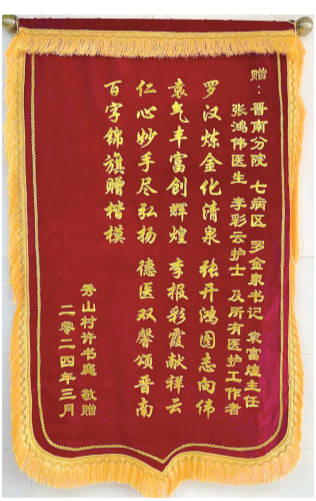 赠：晋南分院 七病区 罗金泉书记 袁富煌主任
张鸿伟医生 李彩云护士 及所有医护工作者
罗汉炼金化清泉 张开鸿图志向伟
袁气丰富创辉煌 李报彩霞献祥云
仁心妙手尽弘扬 德医双馨颂晋南
百字锦旗赠楷模
秀山村许书庭 敬赠
二零二四年三月